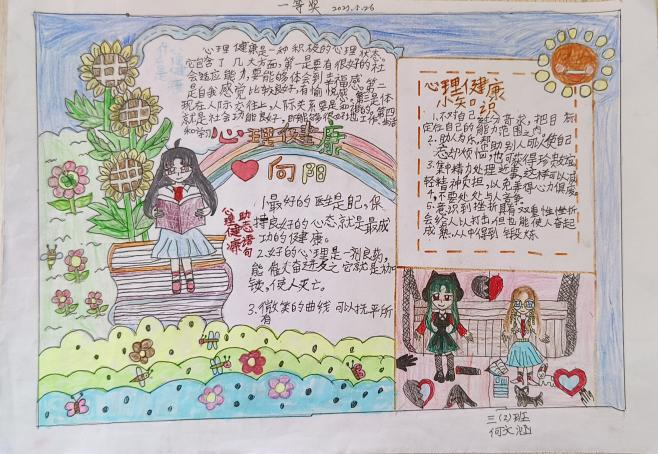 一等奖 2021.5.26
心理健康是一种积极的心理状态。
它包含了几大方面:第一是要有很好的社
会适应能力,要能够体会到幸福感。第二
是自我感觉比较良好,有愉悦感。第三是体
现在人际交往上,人际关系要是和谐的。第四
就是社会功能良好,即能够很好地工作、生活
和学习
心理健康
向阳
心理健康
励志语句
1.最好的医生是自己,保
持良好的心态就是最成
功的健康。
2.好的心理是一剂良药,
能催人奋进,反之它就是枷
锁,使人灭亡。
3.微笑的曲线可以抚平所
有
心理健康
小知识
1.不对自己过分苛求,把目标
定在自己的能力范围之内
2.助人为乐,帮助别人可以使自己
忘却烦恼,也可获得珍贵友谊
3.集中精力处理近事,这样可以减
轻精神负担,以免弄得心力俱疲
4.不要处处与人竞争。
5.意识到挫折具有双重性,挫折
会给人以打击,但也能使人奋起
成熟,从中得到锻炼
三(2)班
何文涵